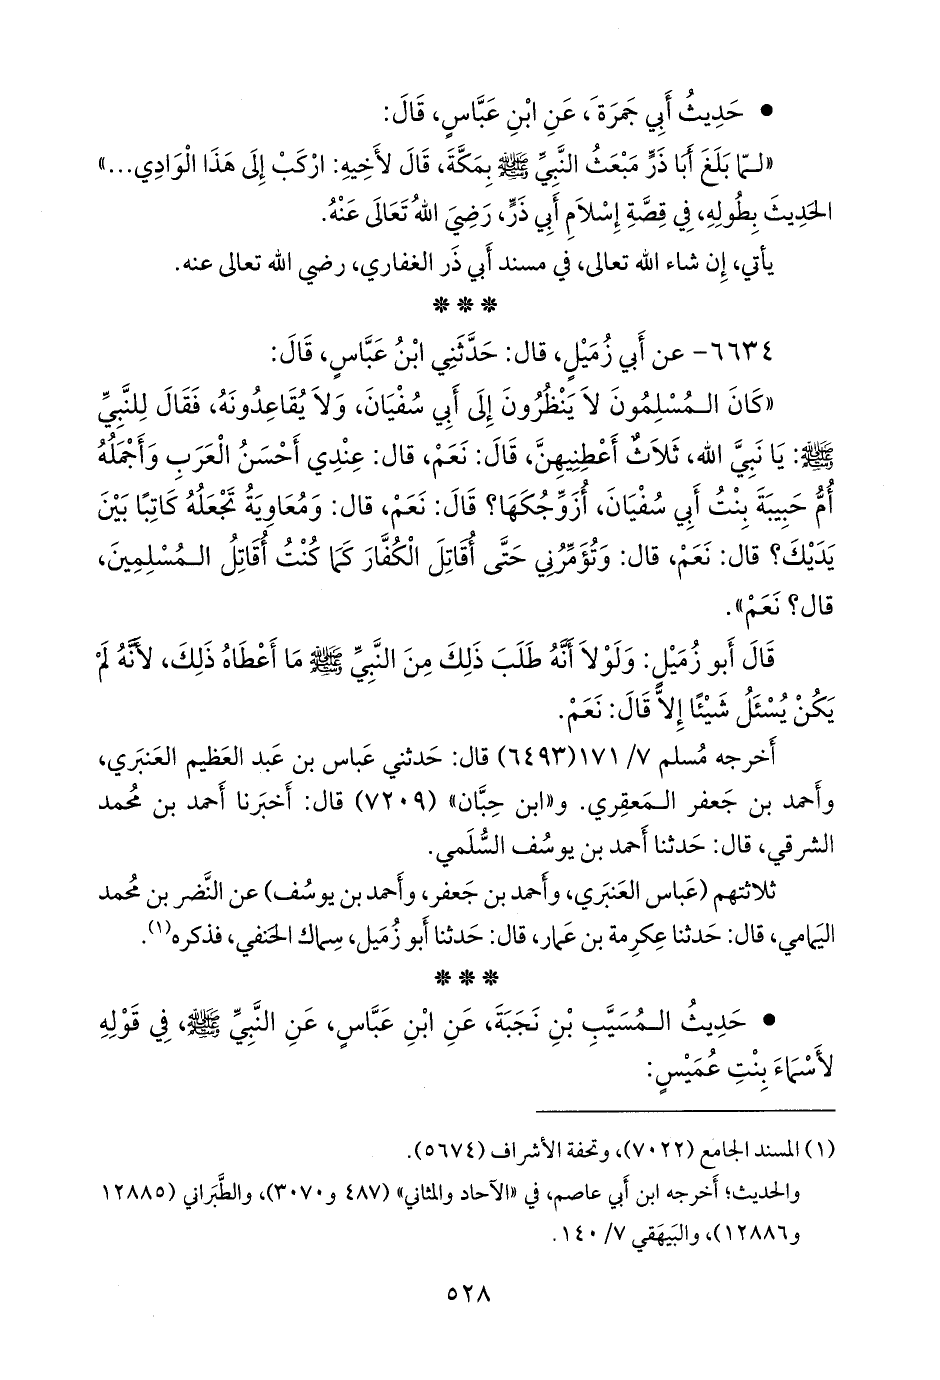 • حَدِيثُ أَبِي جَمَرَةَ، عَنِ ابْنِ عَبَّاسٍ، قَالَ:
«لـمَّا بَلَغَ أَبَا ذَرٍّ مَبْعَثُ النَّبِيِّ ﷺ بِمَكَّةَ، قَالَ لأَخِيهِ: ارْكَبْ إِلَى هَذَا الْوَادِي...»
الحَدِيثَ بِطُولِهِ، فِي قِصَّةِ إِسْلاَمِ أَبِي ذَرٍّ، رَضِيَ اللهُ تَعَالَى عَنْهُ.
يأتي، إن شاء الله تعالى، في مسند أَبي ذَر الغفاري، رضي الله تعالى عنه.
* * *
٦٦٣٤- عن أَبي زُمَيْلٍ، قال: حَدَّثَنِي ابْنُ عَبَّاسٍ، قَالَ:
«كَانَ الـمُسْلِمُونَ لاَ يَنْظُرُونَ إِلَى أَبِي سُفْيَانَ، وَلاَ يُقَاعِدُونَهُ، فَقَالَ لِلنَّبِيِّ
ﷺ: يَا نَبِيَّ الله، ثَلاَثٌ أَعْطِنِيهِنَّ، قَالَ: نَعَمْ، قال: عِنْدِي أَحْسَنُ الْعَرَبِ وَأَجْمَلُهُ
أُمُّ حَبِيبَةَ بِنْتُ أَبِي سُفْيَانَ، أُزَوِّجُكَهَا؟ قَالَ: نَعَمْ، قال: وَمُعَاوِيَةُ تَجْعَلُهُ كَاتِبًا بَيْنَ
يَدَيْكَ؟ قال: نَعَمْ، قال: وَتُؤَمِّرُنِي حَتَّى أُقَاتِلَ الْكُفَّارَ كَمَا كُنْتُ أُقَاتِلُ الـمُسْلِمِينَ،
قال؟ نَعَمْ».
قَالَ أَبو زُمَيْلٍ: وَلَوْلاَ أَنَّهُ طَلَبَ ذَلِكَ مِنَ النَّبِيِّ ﷺ مَا أَعْطَاهُ ذَلِكَ، لأَنَّهُ لَمْ
يَكُنْ يُسْئَلُ شَيْئًا إِلاَّ قَالَ: نَعَمْ.
أَخرجه مُسلم ٧/ ١٧١(٦٤٩٣) قال: حَدثني عَباس بن عَبد العَظيم العَنبَري،
وأَحمد بن جَعفر الـمَعقِري. و«ابن حِبَّان» (٧٢٠٩) قال: أَخبَرنا أَحمد بن مُحمد
الشرقي، قال: حَدثنا أَحمد بن يوسُف السُّلَمي.
ثلاثتهم (عَباس العَنبَري، وأَحمد بن جَعفر، وأَحمد بن يوسُف) عن النَّضر بن مُحمد
اليَمامي، قال: حَدثنا عِكرِمة بن عَمار، قال: حَدثنا أَبو زُمَيل، سِماك الحَنفي، فذكره(١).
* * *
• حَدِيثُ الـمُسَيَّبِ بْنِ نَجَبَةَ، عَنِ ابْنِ عَبَّاسٍ، عَنِ النَّبِيِّ ﷺ، فِي قَوْلِهِ
لأَسْمَاءَ بِنْتِ عُمَيْسٍ:
(١) المسند الجامع (٧٠٢٢)، وتحفة الأشراف (٥٦٧٤).
والحديث؛ أَخرجه ابن أَبي عاصم، في «الآحاد والمثاني» (٤٨٧ و٣٠٧٠)، والطَّبَراني (١٢٨٨٥
و١٢٨٨٦)، والبَيهَقي ٧/ ١٤٠.
٥٢٨